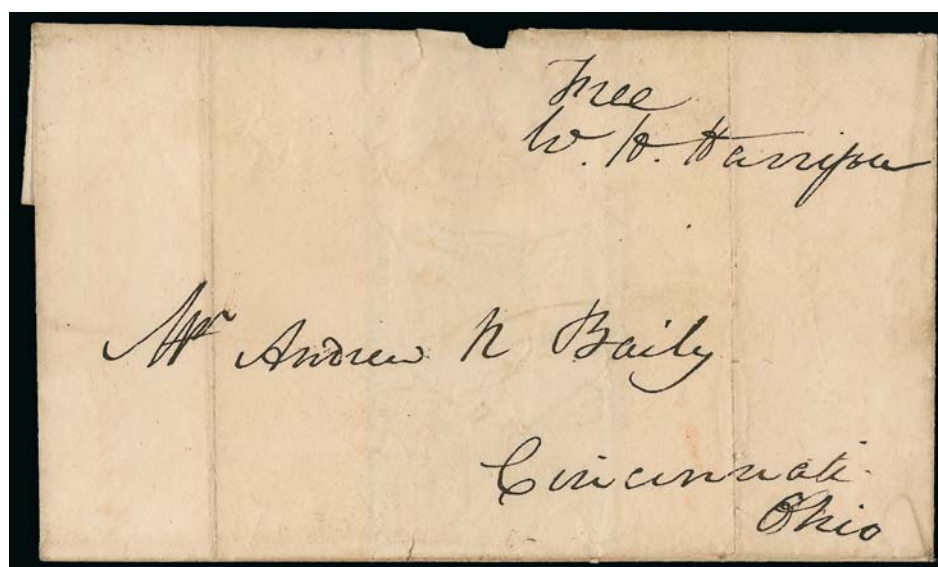 Free
W. H. Harrison
Mr Andrew N Baily
Cincinnati
Ohio